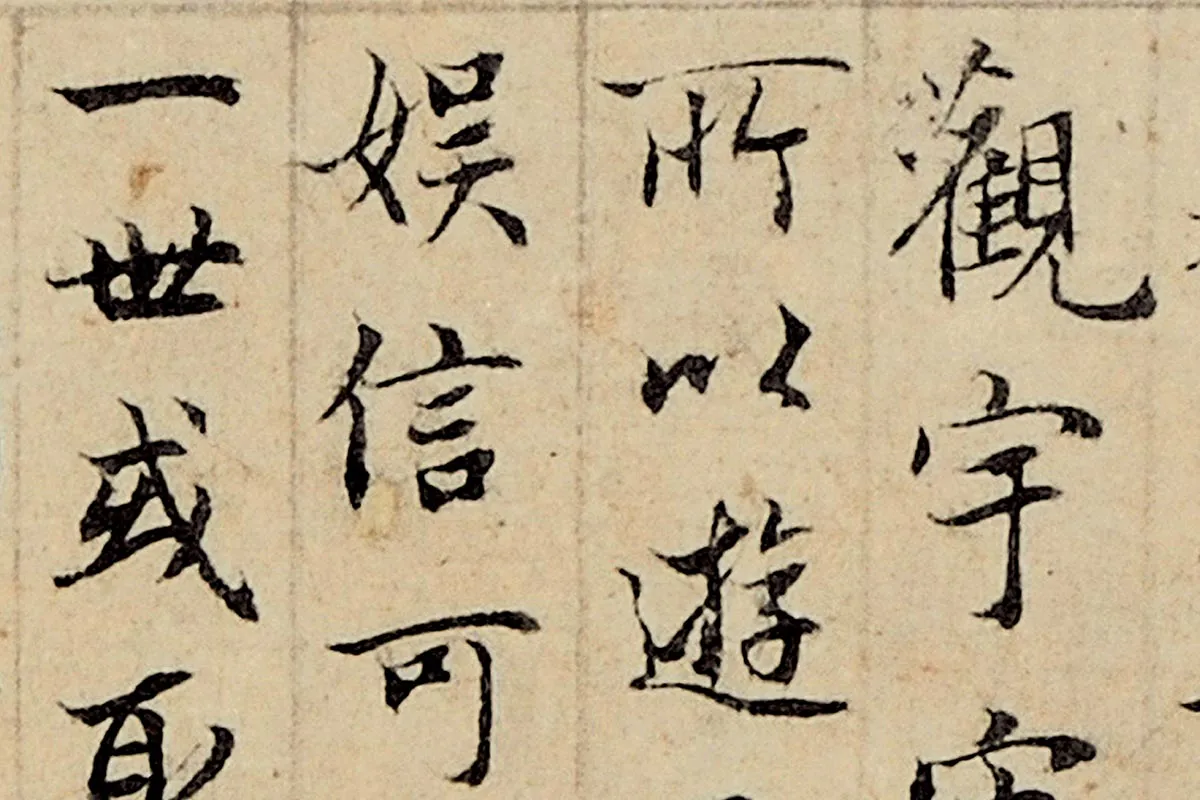 觀宇
所以遊
娱信可
一世或取